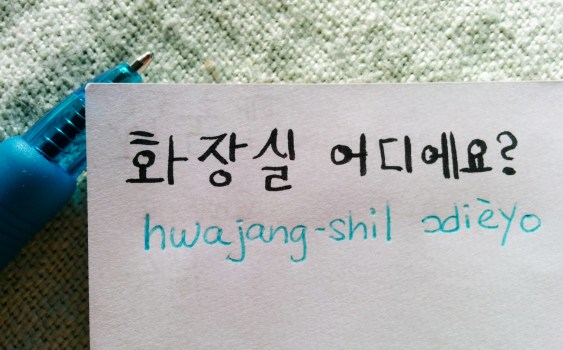 화장실 어디에요?
hwajang-shil ɔdièyo